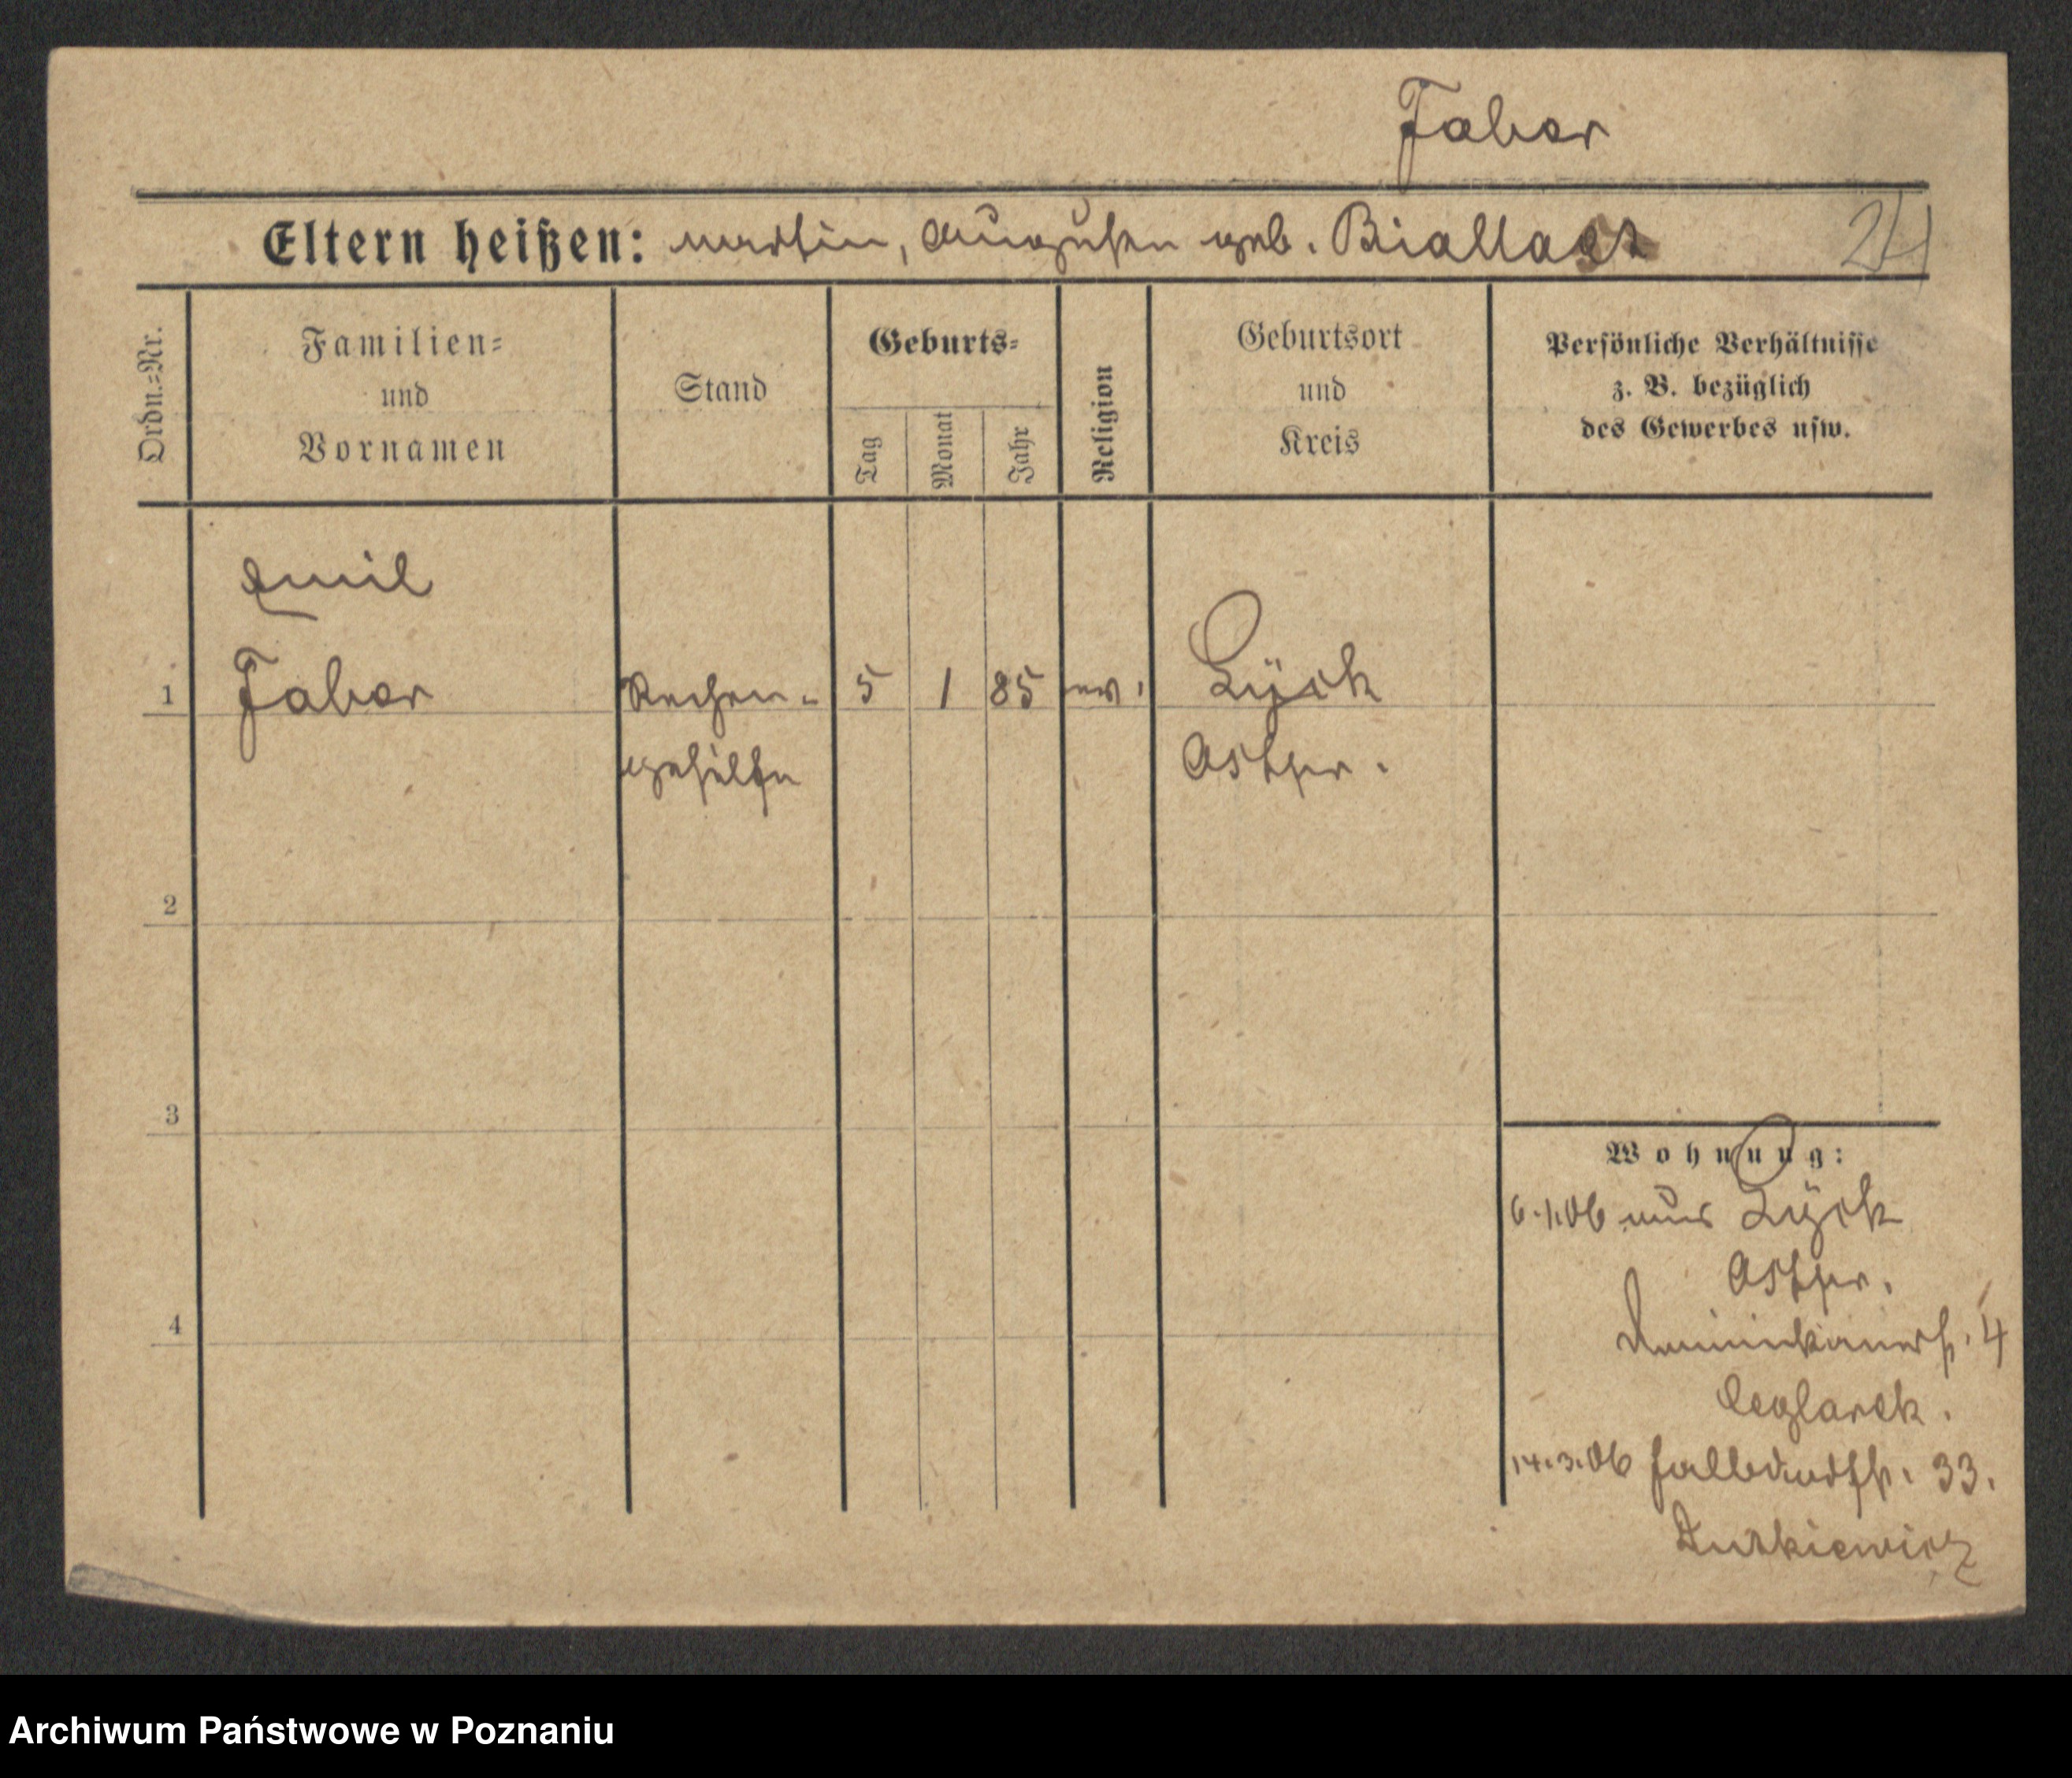 Faber
Eltern heißen: Martin, Auguste geb. Biallas
24
Ordn.=Nr.
Familien=
und
Vornamen
Stand
Geburts=
Tag
Monat
Jahr
Religion
Geburtsort
und
Kreis
Persönliche Verhältnisse
z. B. bezüglich
des Gewerbes usw.
Emil
1 Faber Rechen- 5 1 85 ev. Lyck
gehilfe Ostpr.
2
3
4
Wohnung:
6.1.06 aus Lyck
Ostpr.
Dominikanerstr. 4
Ceglarek.
14.3.06 Halbdorfstr. 33.
Kurkiewicz
Archiwum Państwowe w Poznaniu